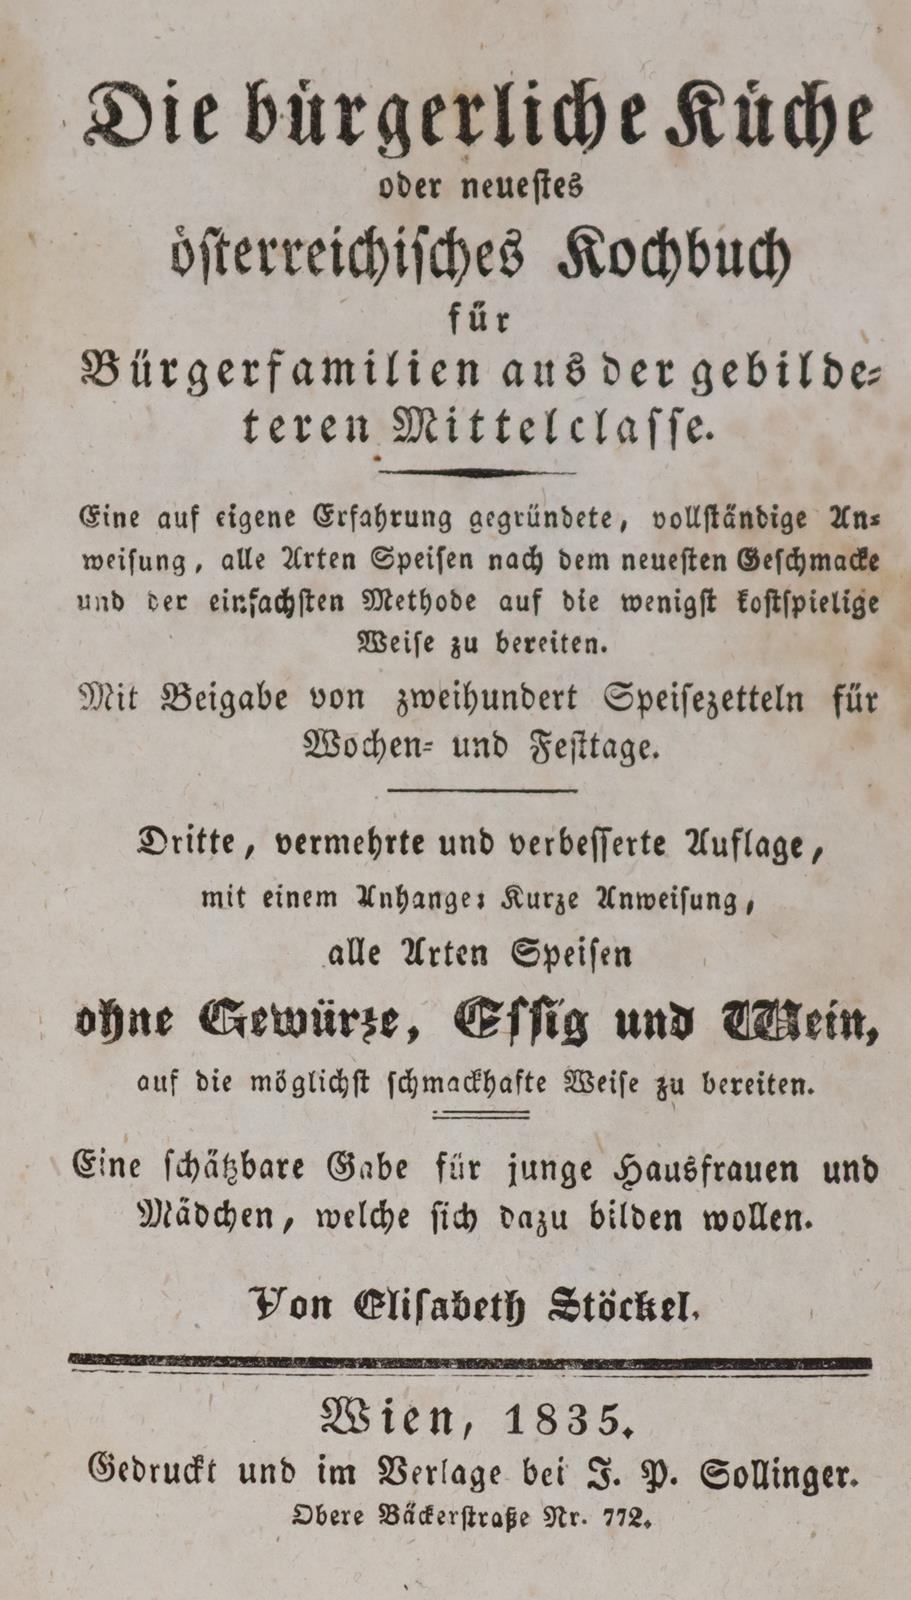 Die bürgerliche Küche
oder neuestes
österreichisches Kochbuch
für
Bürgerfamilien aus der gebilde-
teren Mittelclasse.
Eine auf eigene Erfahrung gegründete, vollständige An-
weisung, alle Arten Speisen nach dem neuesten Geschmacke
und der einfachsten Methode auf die wenigst kostspielige
Weise zu bereiten.
Mit Beigabe von zweihundert Speisezetteln für
Wochen- und Festtage.
Dritte, vermehrte und verbesserte Auflage,
mit einem Anhange: Kurze Anweisung,
alle Arten Speisen
ohne Gewürze, Essig und Wein,
auf die möglichst schmackhafte Weise zu bereiten.
Eine schätzbare Gabe für junge Hausfrauen und
Mädchen, welche sich dazu bilden wollen.
Von Elisabeth Stöckel.
Wien, 1835.
Gedruckt und im Verlage bei J. P. Sollinger.
Obere Bäckerstraße Nr. 772.